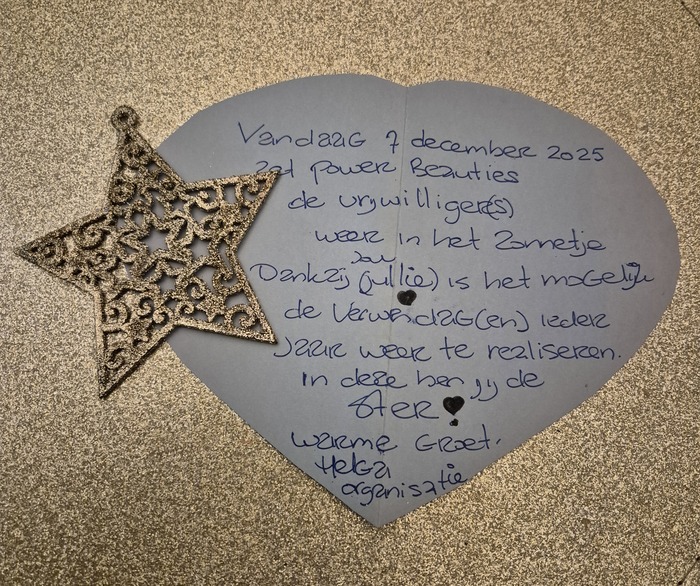 Vandaag 7 december 2025
zet power Beauties
de vrijwilliger(s)
weer in het Zonnetje
Jou
Dankzij (jullie) is het mogelijk
de Verwendag(en) ieder
Jaar weer te realiseren.
In deze ben jij de
Ster!
warme Groet.
Helga
organisatie